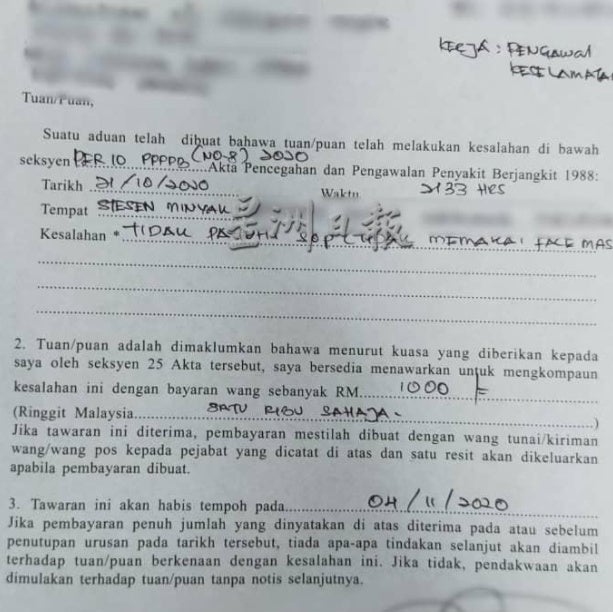 KERJA : PENGAWAL
KESELAMATAN
Tuan/Puan,
Suatu aduan telah dibuat bahawa tuan/puan telah melakukan kesalahan di bawah
seksyen PER 10 PPPPB (NO-8) 2020 Akta Pencegahan dan Pengawalan Penyakit Berjangkit 1988:
Tarikh 21/10/2020 Waktu 2133 HRS
Tempat STESEN MINYAK
星洲日報
Kesalahan * TIDAK PATUHI SOP MEMAKAI FACE MAS
2. Tuan/puan adalah dimaklumkan bahawa menurut kuasa yang diberikan kepada
saya oleh seksyen 25 Akta tersebut, saya bersedia menawarkan untuk mengkompaun
kesalahan ini dengan bayaran wang sebanyak RM 1000/=
(Ringgit Malaysia SATU RIBU SAHAJA-)
Jika tawaran ini diterima, pembayaran mestilah dibuat dengan wang tunai/kiriman
wang/wang pos kepada pejabat yang dicatat di atas dan satu resit akan dikeluarkan
apabila pembayaran dibuat.
3. Tawaran ini akan habis tempoh pada 04/11/2020
Jika pembayaran penuh jumlah yang dinyatakan di atas diterima pada atau sebelum
penutupan urusan pada tarikh tersebut, tiada apa-apa tindakan selanjut akan diambil
terhadap tuan/puan berkenaan dengan kesalahan ini. Jika tidak, pendakwaan akan
dimulakan terhadap tuan/puan tanpa notis selanjutnya.